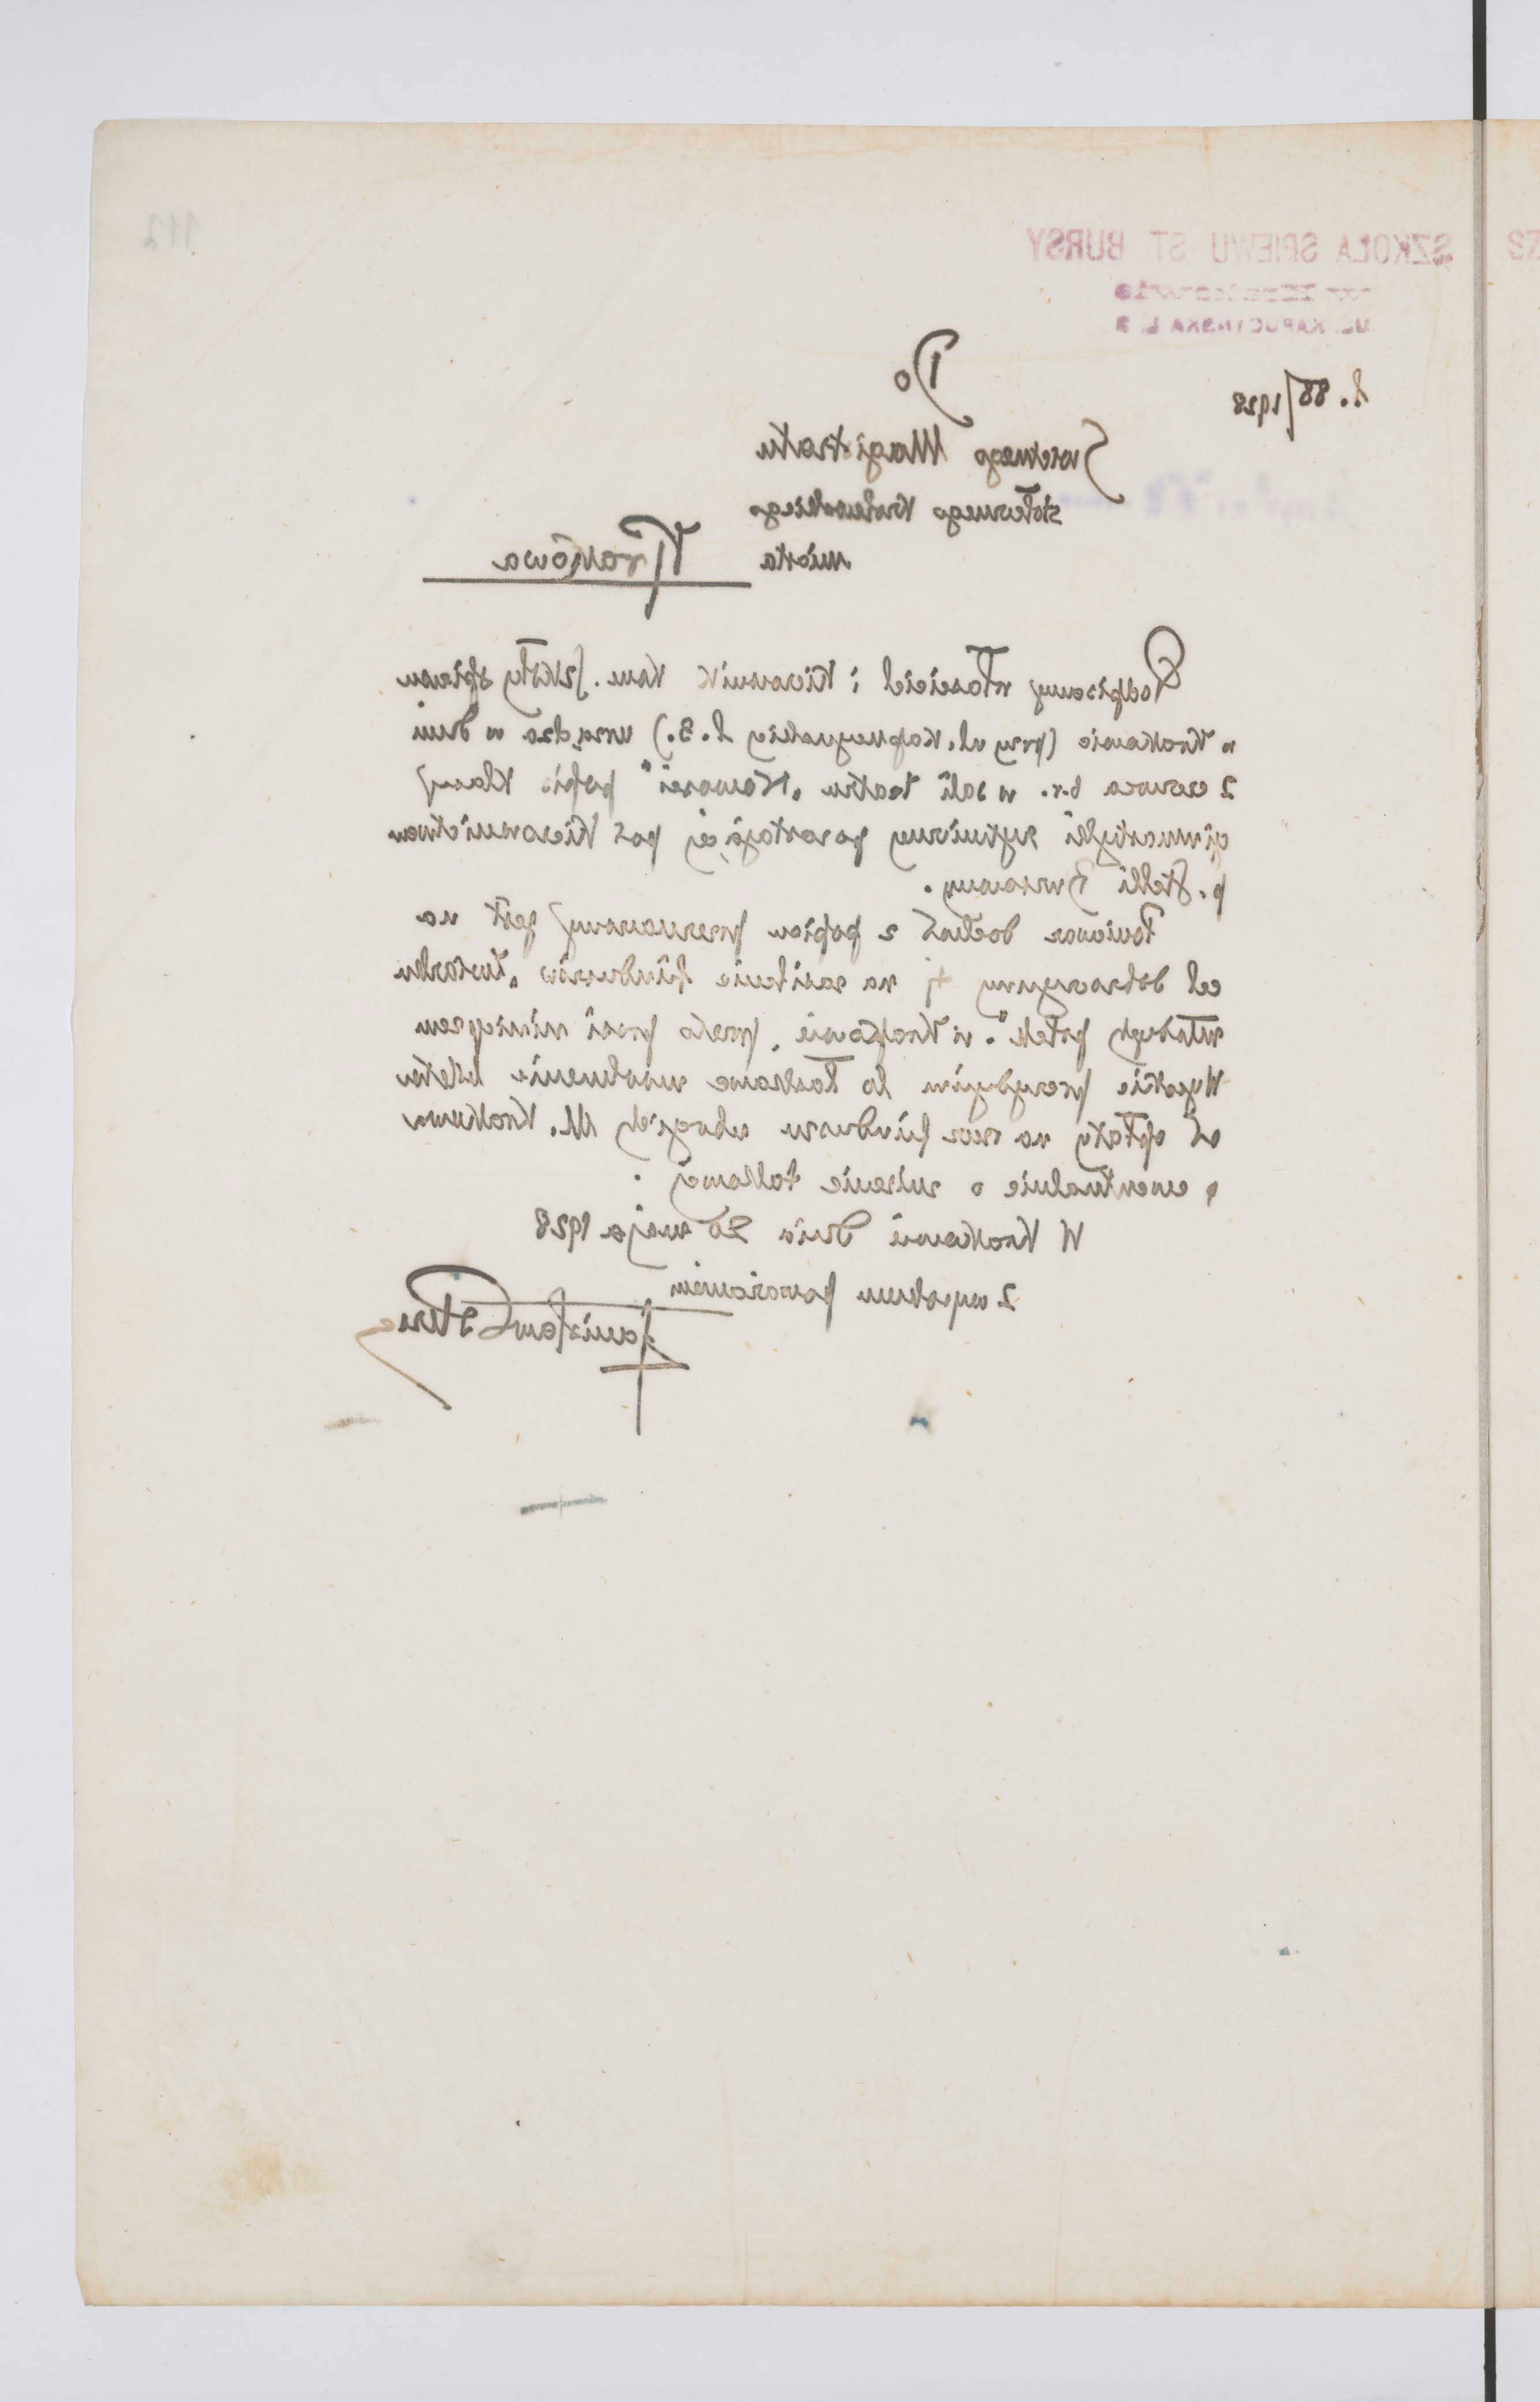 112
SZKOŁA ŚPIEWU ST BURSY
w Krakowie
UL. KAPUCYŃSKA L 3
L. 88/1928
Do
Świetnego Magistratu
stołecznego Królewskiego
miasta Krakowa
Podpisany właściciel i Kierownik Szkoły śpiewu
w Krakowie (przy ul. Kapucyńskiej L. 3.) urządza w dniu
2 czerwca b.r. w sali teatru „Nowości" popis Klasy
gimnastyki rytmicznej pozostającej pod Kierownictwem
p. Stelli
Ponieważ dochód z popisu przeznaczony jest na
cel dobroczynny tj na zasilenie funduszów
młodych Polek". w Krakowie, przeto prosi niniejszem
Wysokie prezydjum to łaskawe uwolnienie
od opłaty na rzecz funduszu ubogich M. Krakowa
ewentualnie o zniżenie takowej.
W Krakowie dnia 20 maja 1928
Z wysokiem poważaniem
Stanisław Bursa